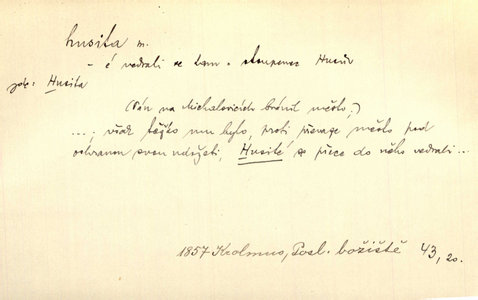 husita m.
- é vedrali se tam. stoupenec Husův
jde: Husita
(Pán na Michalovicích bránil město,)
... však těžko mu bylo, proti přesage město pod
ochranou svou udržeti, Husité se přece do něho vedrali ...
1857 Krolmus, Posl. božiště 43, 20.